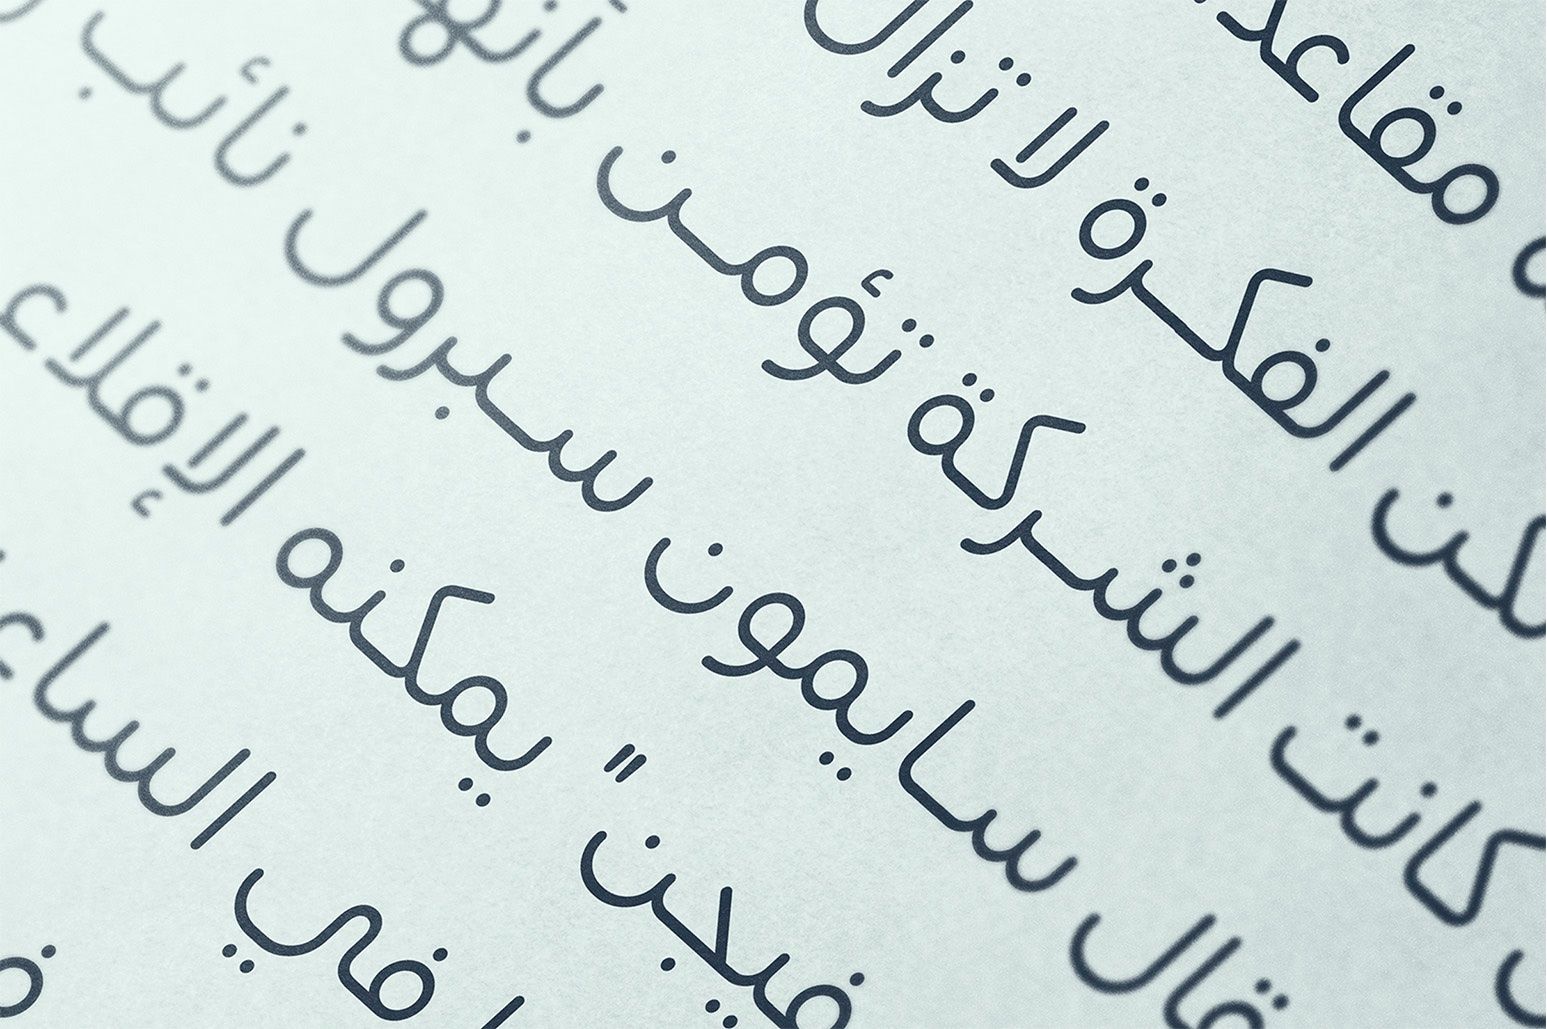 لكن الفكرة لا تزال
كانت الشركة تؤمن
قال سايمون سبرول نائب
فيجن" يمكنه الإقلاع
في